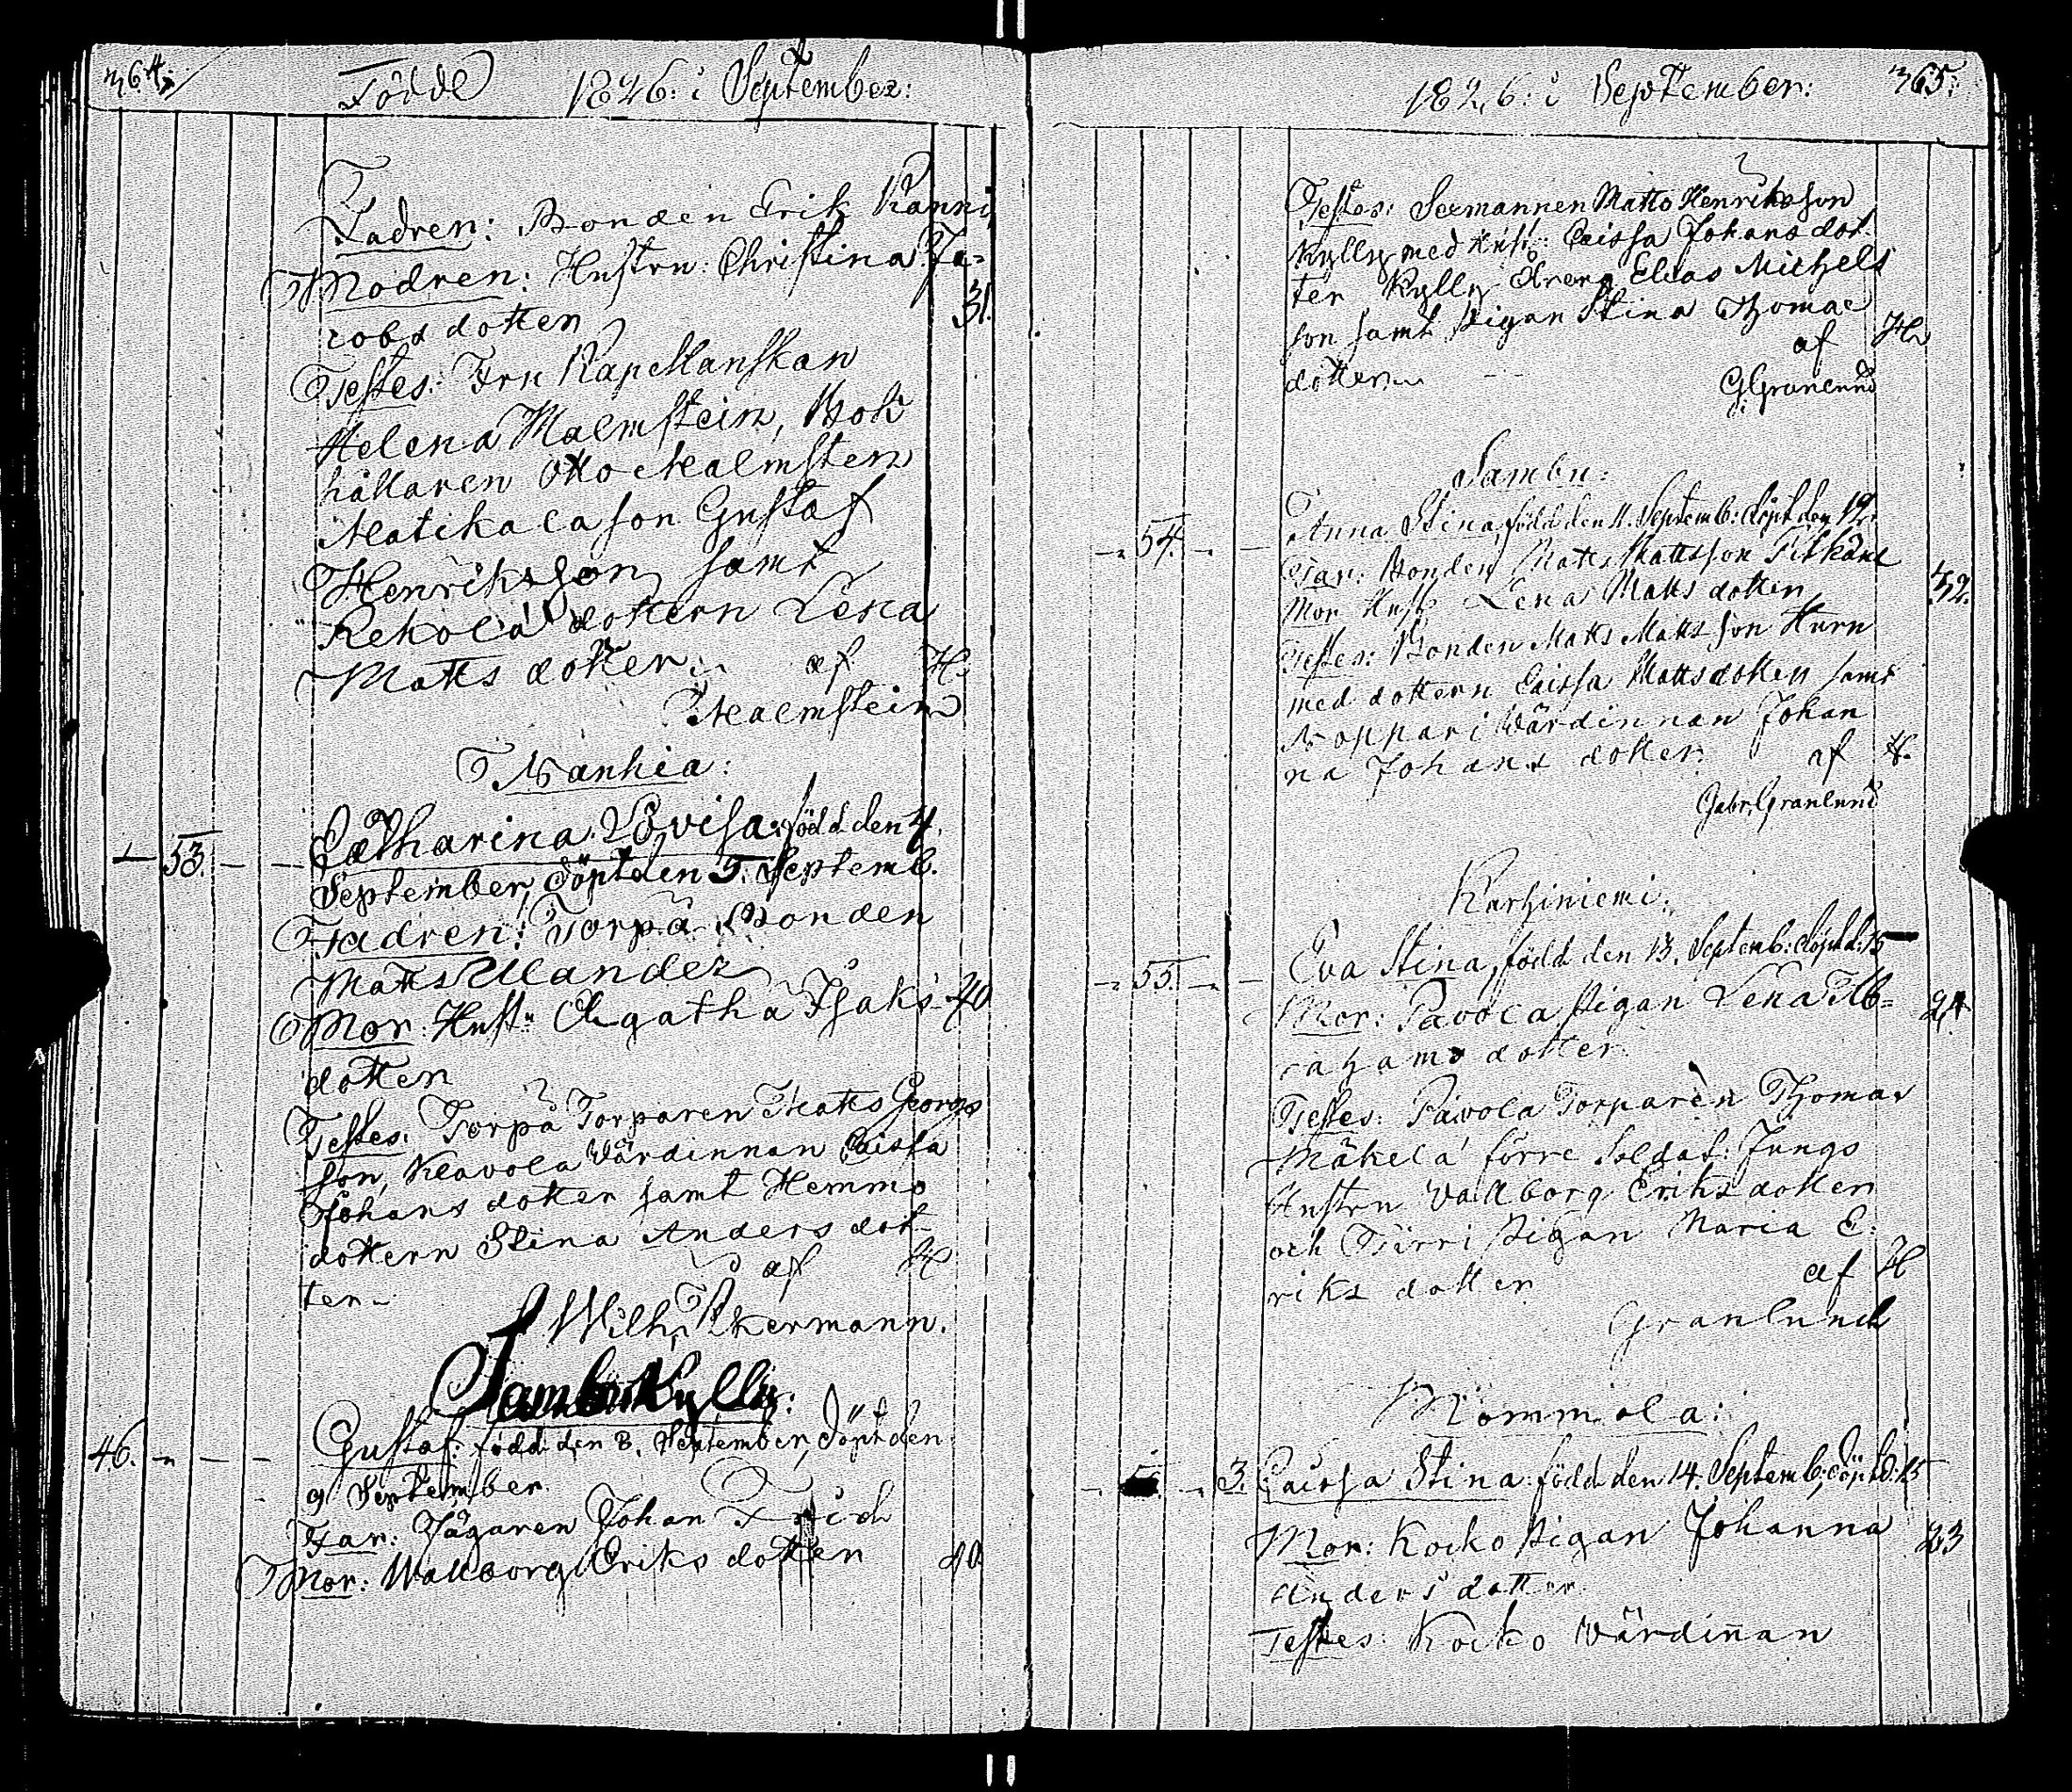 364.
Födde 1826: i September:
Fadren: Bonden Erik Ranni
Modren: Hustru: Christina Ja-
cobs dotter 31.
Testes: Fru Kapellanskan
Helena Malmstein, Bok
hållaren Otto Malmsten
Matikala son Gustaf
Henriksson samt
Rekola dottern Lena
Matts dotter. af H.
Malmstein
Wanhia:
53. Catharina Lovisa: född den 4.
September, döpt den 5. Septemb.
Fadren: Torpa Bonden
Matts Mander
Mor: Hustr. Agatha Isaks 40
dotter
Testes: Torpa Torparen Matts Georgs
son, Klavola Värdinnan Caissa
Johans dotter samt Hemmo
dottern Stina Anders dot-
ter af H
Wilh. Åkermann.
Sambu Kylly:
46. Gustaf: född den 8. September, döpt den
9 September
Far: Jägaren Johan
Mor: Wallborg Eriks dotter 40
1826: i September: 365:
Testes: Matts Henriksson
Kylly med hust: Caissa Johans dot-
ter Kylly Dreng Elias Michels
son samt Pigan Stina Thomae
dotter af H
G: Granlund
Sambu:
54. Anna Stina, född den 11. Septemb: döpt den 12.
Far: Bonden Matts Mattsson Pitkäne
Mor Hust: Lena Matts dotter 32.
Testes: Bonden Matts Matts son Huru
med dottern Caissa Mattsdotter samt
Noppari Wärdinnan Johan
na Johans dotter af H.
Gabr. Granlund
Karhiniemi:
55. Eva Stina, född den 13. Septemb: döpt d: 15
Mor: Pavola Pigan Lena Ab- 24
rahams dotter
Testes: Pavola Torparen Thomas
Mäkelä förre Soldat: Jungs
Hustru Wallborg Eriks dotter
och Pigan Maria E:
riks dotter af H
Granlund
Mommola:
3. Caissa Stina: född den 14. Septemb: döpt d: 15
Mor: Koiko Pigan Johanna 23
Anders dotter
Testes: Koiko Värdinnan